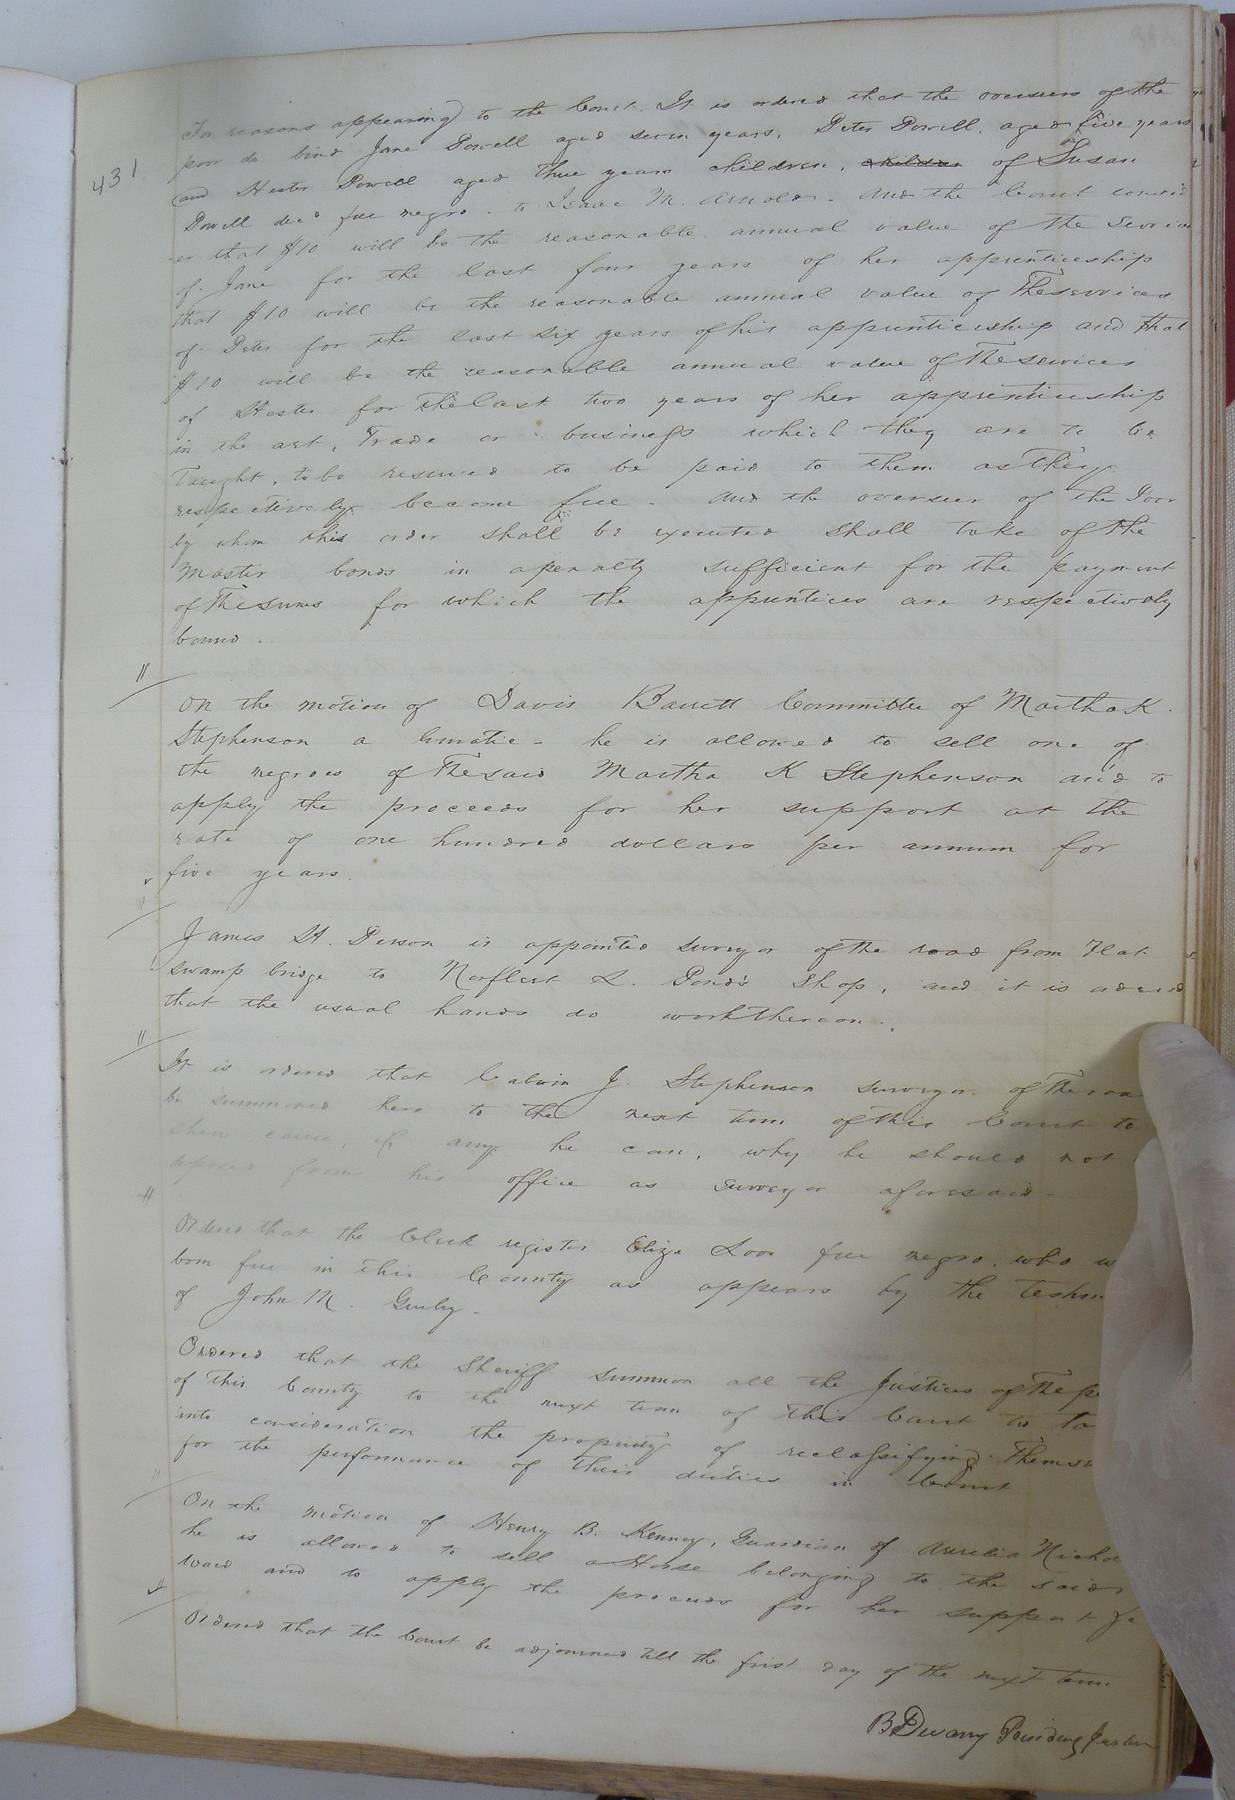 431
For reasons appearing to the Court. It is ordered that the overseers of the
poor do bind Jane Powell aged seven years, Peter Powell, aged five years
and Hester Powell aged three years children, children of Susan
Powell decd free negro. to Isaac M. Arnold. And the Court consid
er that $10 will be the reasonable annual value of the services
of Jane for the last four years of her apprenticeship
that $10 will be the reasonable annual value of The services
of Peter for the last six years of his apprenticeship and that
$10 will be the reasonable annual value of The services
of Hester for the last two years of her apprenticeship
in the art, Trade or business which they are to be
Taught, to be reserved to be paid to them as They
respectively become free. And the overseer of the Poor
by whom this order shall be executed shall take of the
Master bonds in a penalty sufficient for the payment
of The sums for which the apprentices are respectively
bound.
On the motion of Davis Barrett Committee of Martha K.
Stephenson a lunatic - he is allowed to sell one of
the negroes of The said Martha K Stephenson and to
apply the proceeds for her support at the
rate of one hundred dollars per annum for
five years.
James H. Person is appointed surveyor of the road from Flat
swamp bridge to Norfleet L. Pond's Shop, and it is ordered
that the usual hands do work thereon.
It is ordered that Calvin J. Stephenson surveyor of The roa
be summoned here to the next term of this Court to
shew cause, if any he can, why he should not
from his office as surveyor aforesaid
Ordered that the Clerk register Eliza free negro. who w
born free in this County as appears by the Testim
of John M. Gurley.
Ordered that the Sheriff summon all the Justices of The pe
of this County to the next term of this Court to ta
into consideration the propriety of reclassifying Themse
for the performance of their duties in Court
On the motion of Henry B. Kenney, Guardian of Aurelia Nicho
he is allowed to sell a Horse belonging to the said
ward and to apply the proceeds for her support &c
Ordered that the Court be adjourned till the first day of the next term
B Devany Presiding Justice